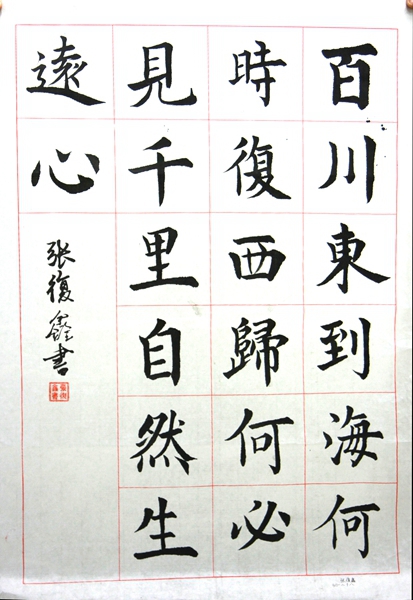 百川東到海何
時復西歸何必
見千里自然生
遠心
张復鑫書